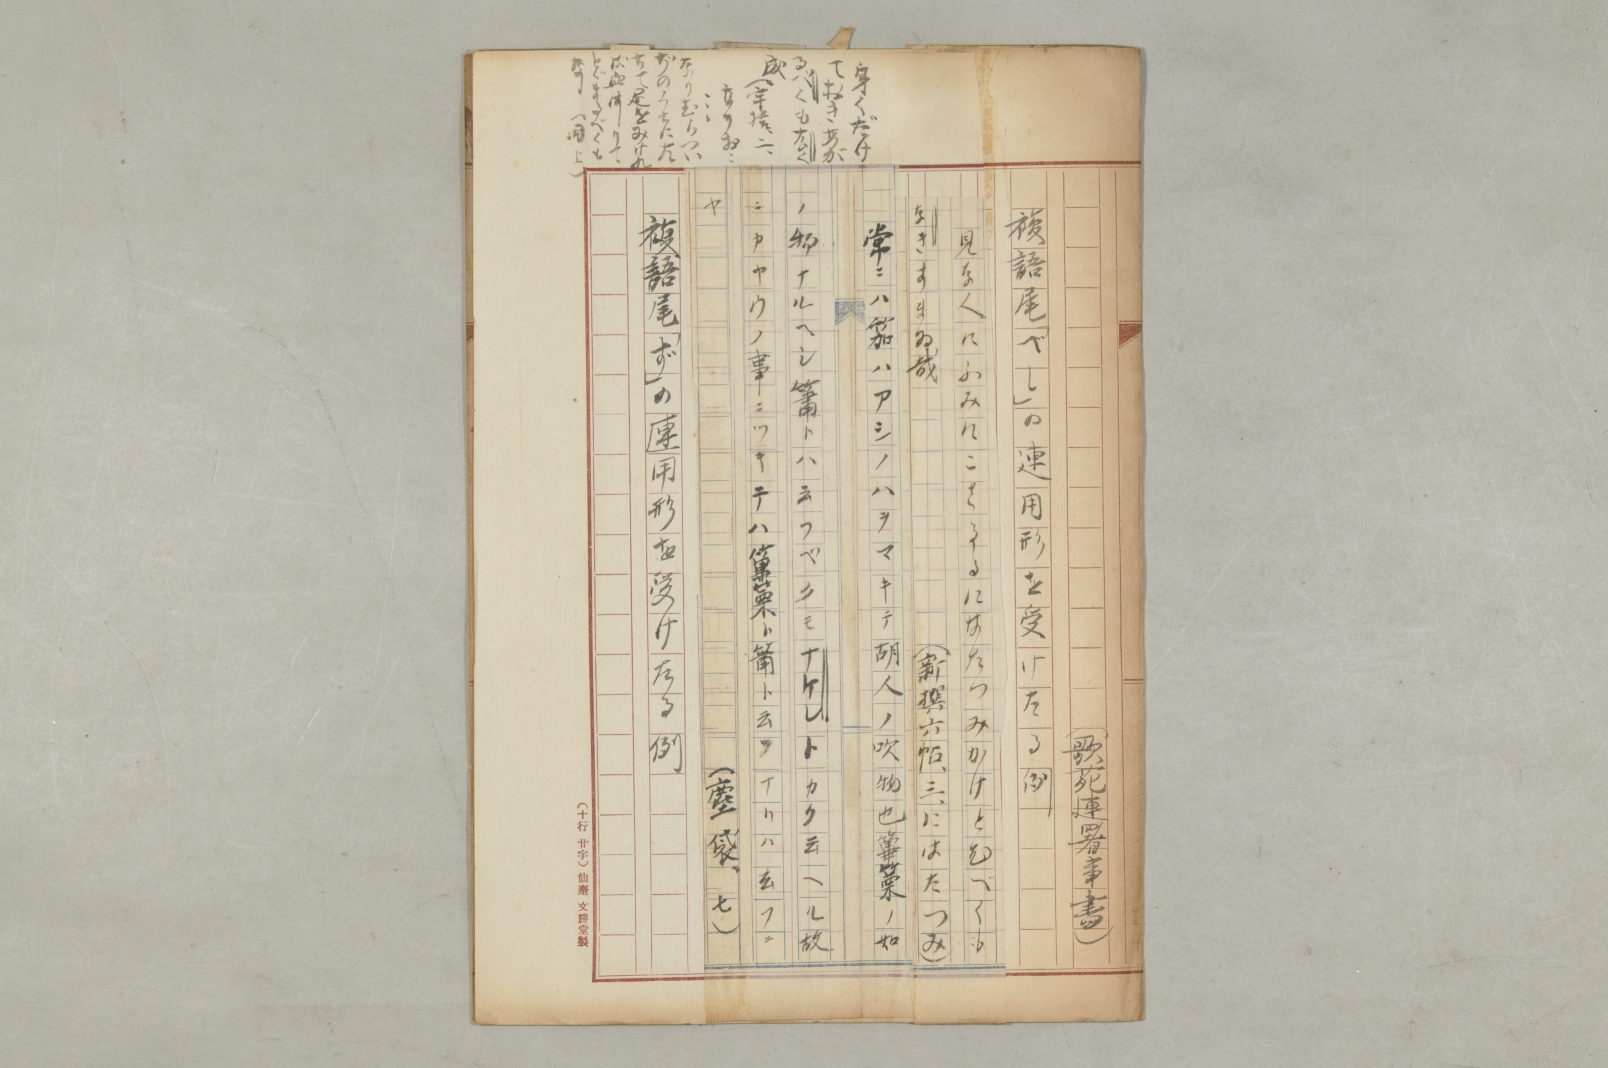 (歌苑連署事書)
複語尾「べし」の連用形を受けたる例
見なくにふみにこさるにはたつみかけとむべくも
なきすまゐ哉
(新撰六帖、三、にはたつみ)
常ニハ笳ハアシノハヲマキテ胡人ノ吹物也篳篥ノ如
ノ物ナルヘシ簫トハ云フベクモナケレトカク云ヘル故
ニカヤウノ事ニツキテハ篳篥ト簫ト云ヲナリハ云フニ
ヤ
(塵袋、七)
複語尾「ず」の連用形を受けたる例
身くだけ
ておきあが
るべくもなく
成(宇拾二、
なりむらつい
ちて尾をみければ
とぐまるべくも
(同上)
(十行 廿字) 仙臺 文勝堂製